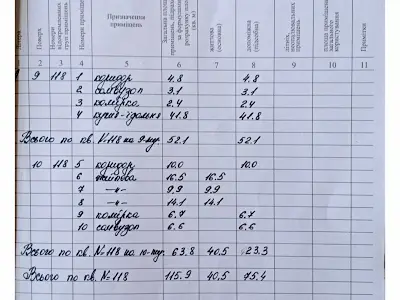 Літера
Поверх
Номери відокремлених груп приміщень
Номери приміщень
Призначення приміщень
житлова (основна)
допоміжна (підсобна)
площа приміщень загального користування
Примітки
2 3 4 5 6 7 8 9 10 11
9 118 1 коридор 4.8 4.8
2 санвузол 3.1 3.1
3 комірка 2.4 2.4
4 кухня-їдальня 41.8 41.8
Всього по кв. №118 на 9 пов. 52.1 52.1
10 118 5 коридор 10.0 10.0
6 житлова 16.5 16.5
7 —"— 9.9 9.9
8 —"— 14.1 14.1
9 комірка 6.7 6.7
10 санвузол 6.6 6.6
Всього по кв. №118 на 10 пов. 63.8 40.5 23.3
Всього по кв. №118 115.9 40.5 75.4